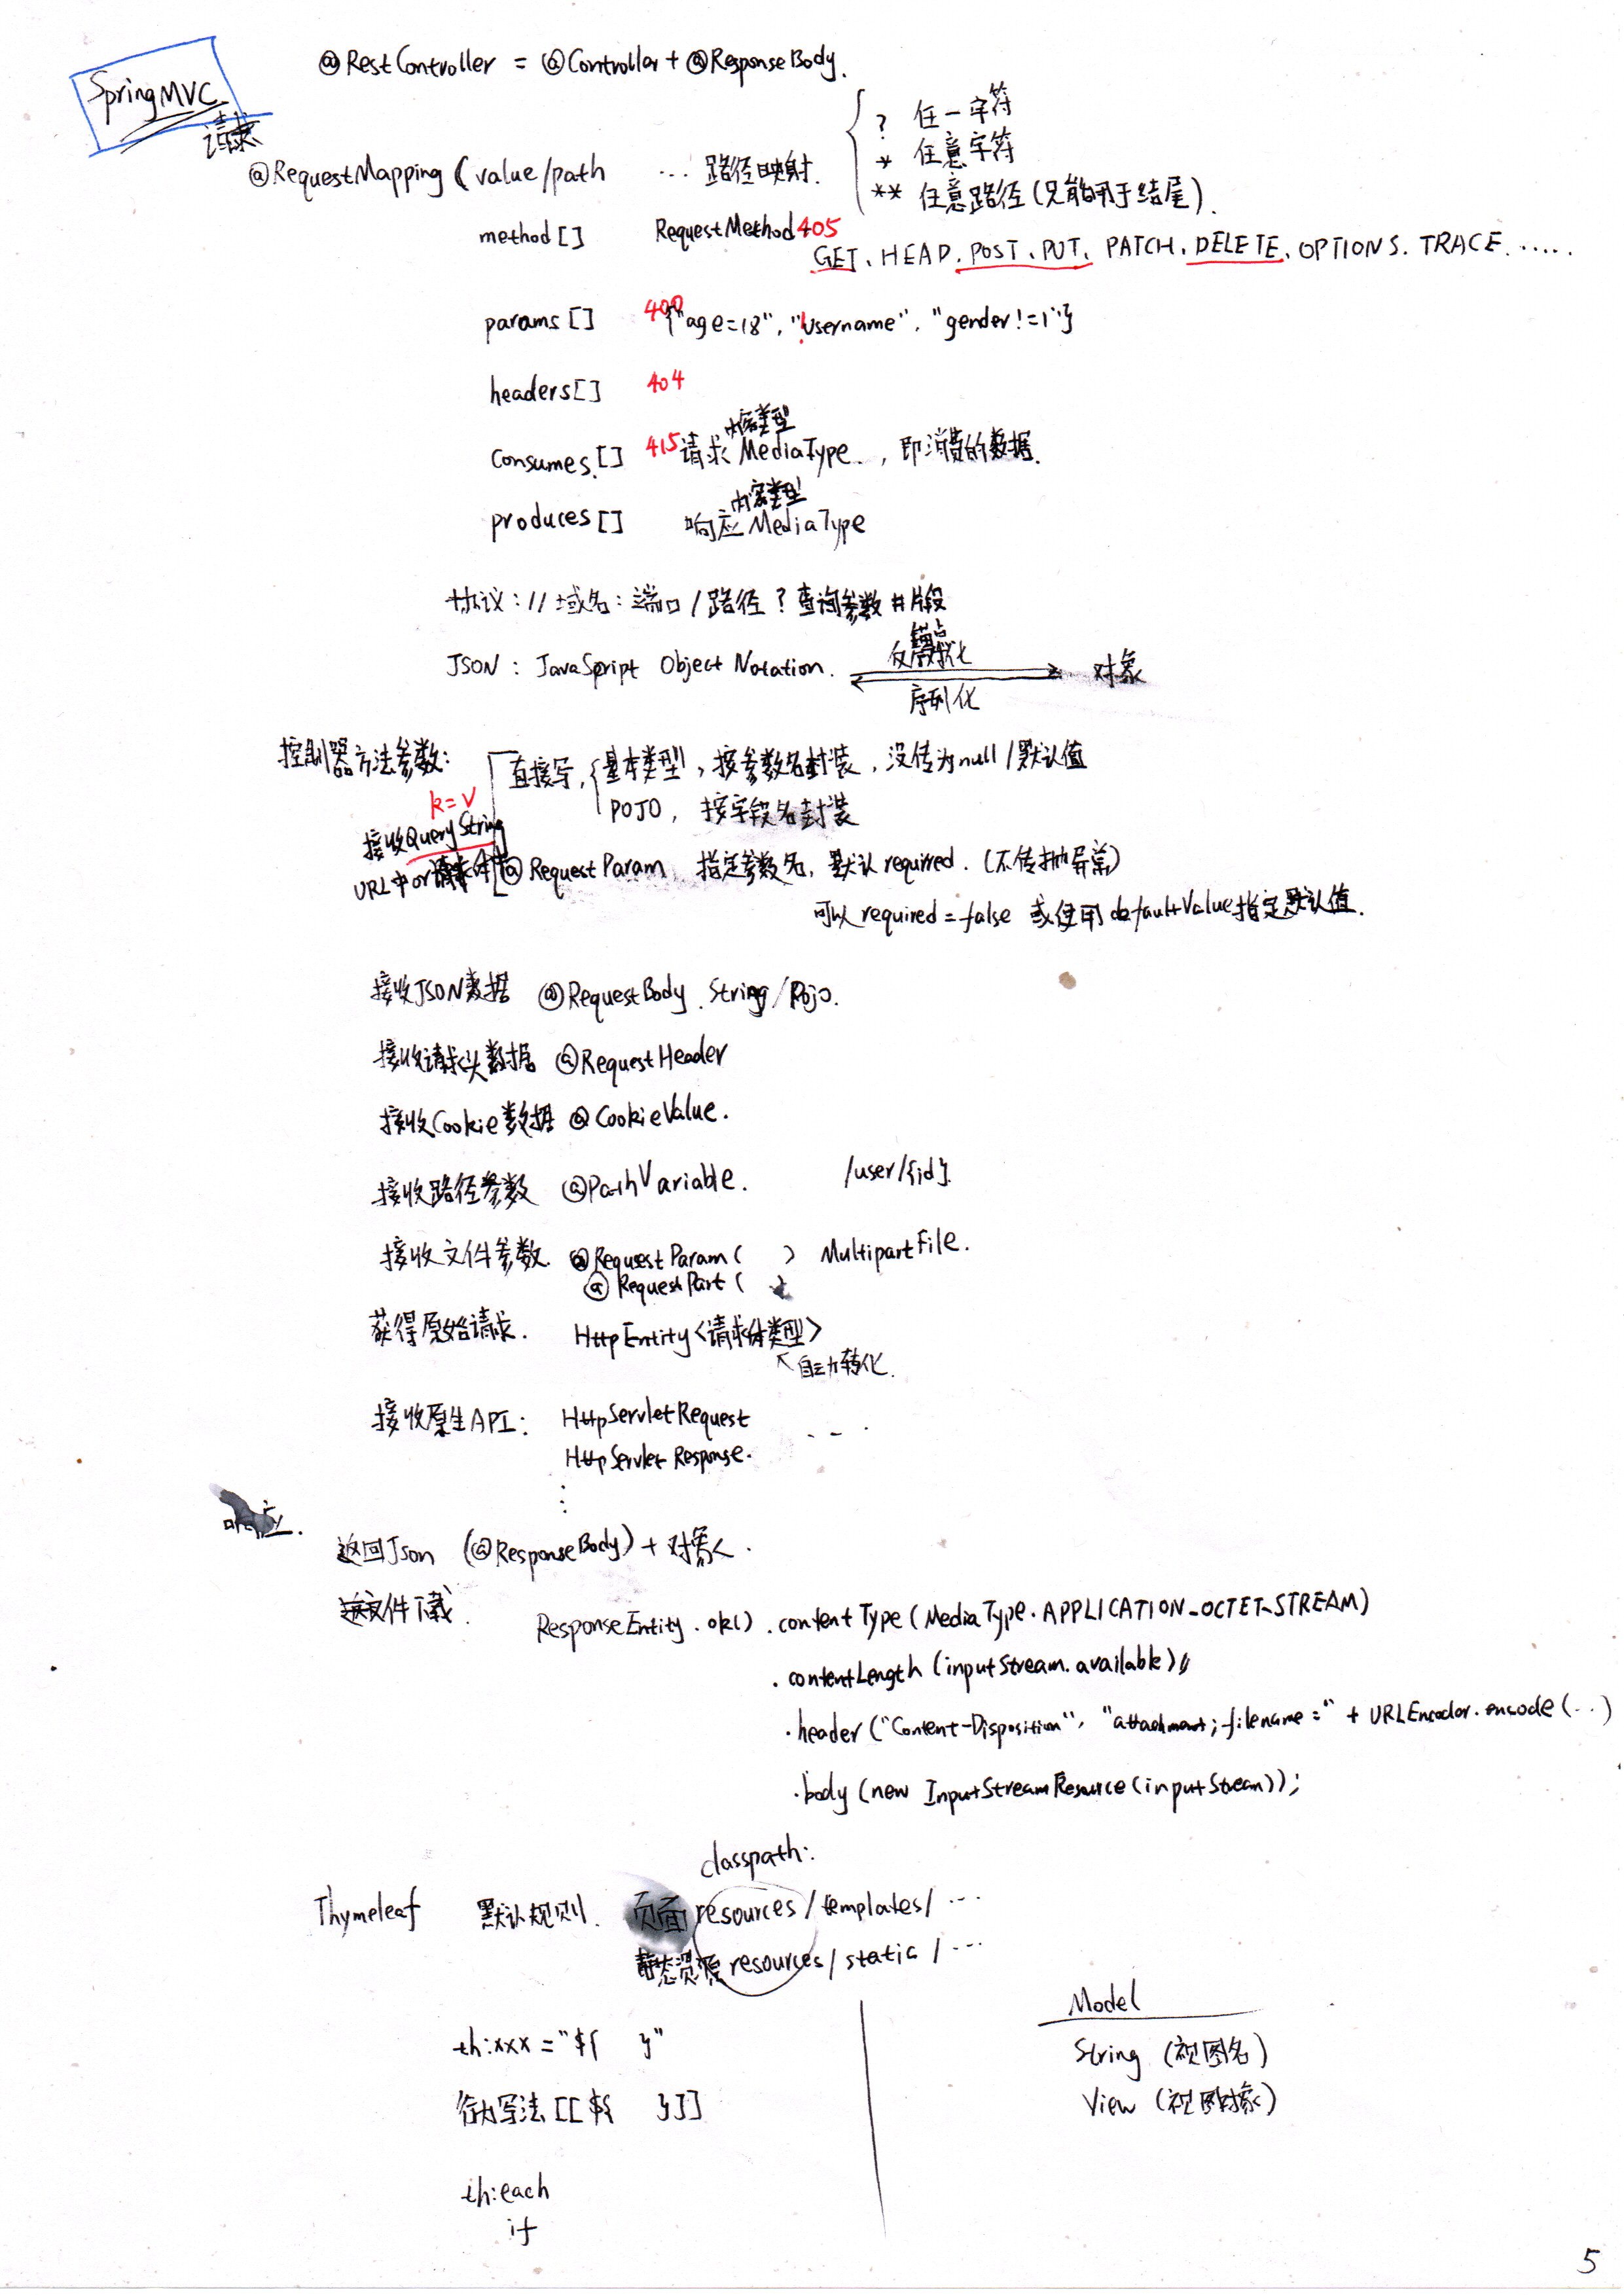 @RestController = @Controller + @ResponseBody.
SpringMVC
请求
? 任一字符
* 任意字符
** 任意路径(只能用于结尾).
@RequestMapping ( value/path ... 路径映射.
method [] RequestMethod 405
GET、HEAD、POST、PUT、PATCH、DELETE、OPTIONS. TRACE. ......
params [] 400 {"age=18", "!username", "gender!=1"}
headers [] 404
内容类型
consumes [] 415 请求 MediaType. , 即消费的数据.
内容类型
produces [] 响应 MediaType
协议://域名:端口/路径?查询参数#片段
锚点
JSON : JavaScript Object Notation. 反序列化 对象
序列化
控制器方法参数: 直接写, 基本类型, 按参数名封装, 没传为null/默认值
POJO, 按字段名封装
k=v
接收QueryString
URL中or请求体中 @RequestParam 指定参数名, 默认required. (不传抛异常)
可以 required=false 或使用 defaultValue指定默认值.
接收JSON数据 @RequestBody String/Pojo.
接收请求头数据 @RequestHeader
接收Cookie数据 @CookieValue.
接收路径参数 @PathVariable. /user/{id}.
接收文件参数. @RequestParam( ) MultipartFile.
@RequestPart( )
获得原始请求. HttpEntity<请求体类型>
自动转化.
接收原生API: HttpServletRequest ...
HttpServletResponse.
⋮
响应.
返回Json (@ResponseBody) + 对象.
文件下载. ResponseEntity.ok() .contentType(MediaType.APPLICATION_OCTET_STREAM)
.contentLength(inputStream.available())
.header("Content-Disposition", "attachment;filename=" + URLEncoder.encode(..)
.body(new InputStreamResource(inputStream));
classpath:
Thymeleaf 默认规则. 页面 resources/templates/ ...
静态资源 resources/static/ ...
Model
th:xxx="${ }"
String (视图名)
View (视图对象)
行内写法 [[${ }]]
th:each
if
5